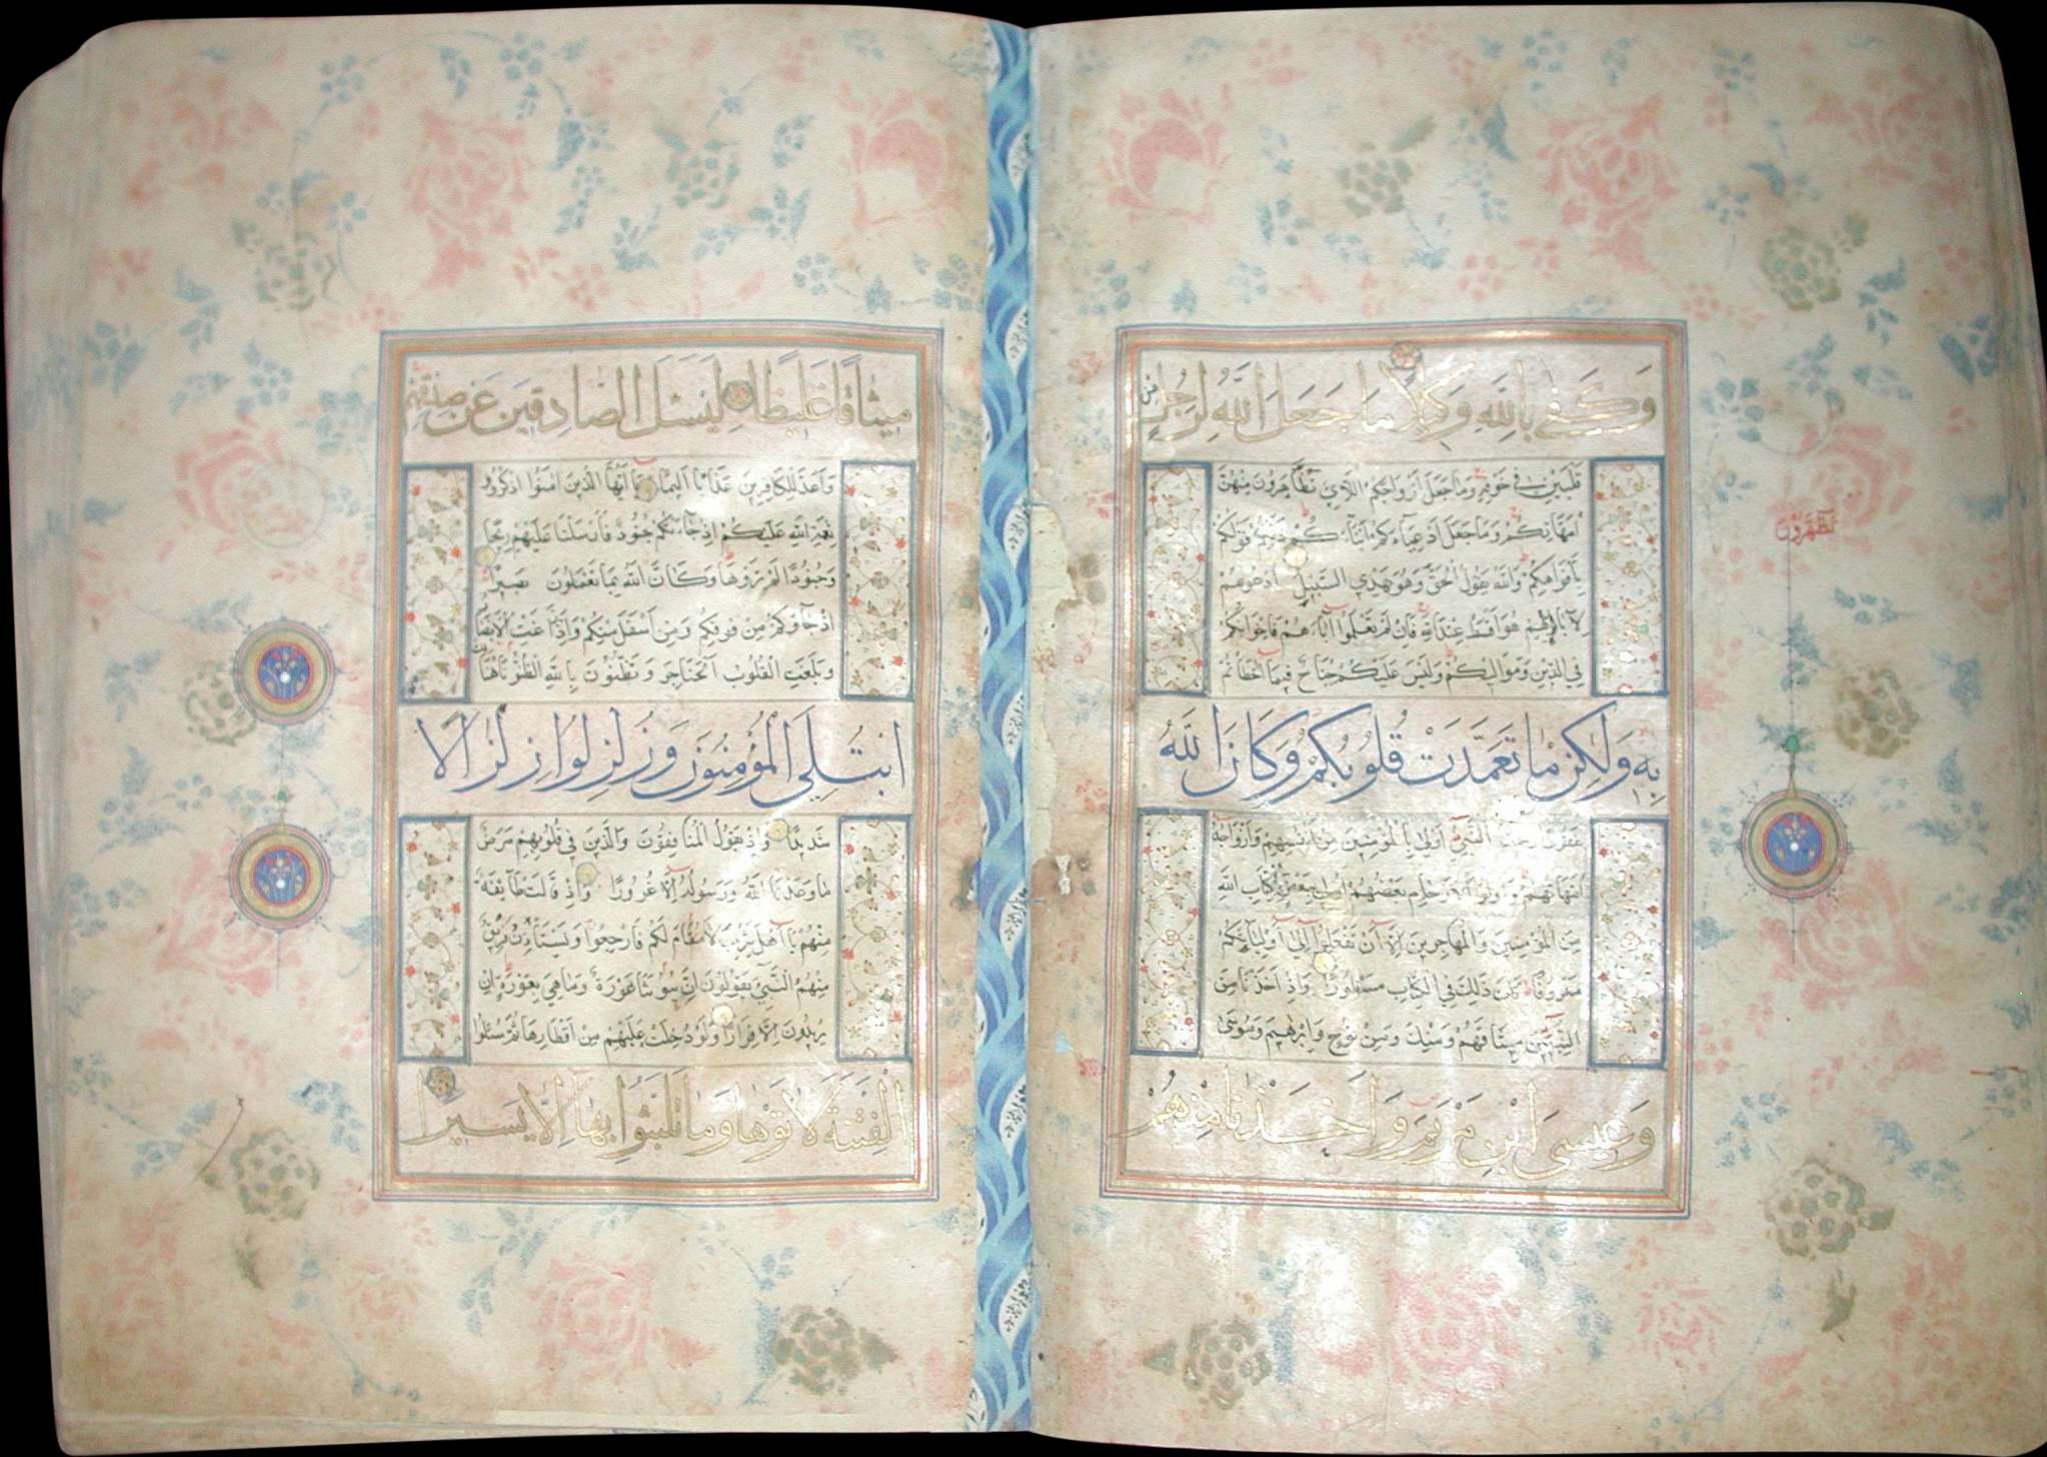 وَكَفَى بِاللَّهِ وَكِيلًا مَا جَعَلَ اللَّهُ لِرَجُلٍ مِنْ
قَلْبَيْنِ فِي جَوْفِهِ وَمَا جَعَلَ أَزْوَاجَكُمُ اللَّائِي تُظَاهِرُونَ مِنْهُنَّ
أُمَّهَاتِكُمْ وَمَا جَعَلَ أَدْعِيَاءَكُمْ أَبْنَاءَكُمْ ذَلِكُمْ قَوْلُكُمْ
بِأَفْوَاهِكُمْ وَاللَّهُ يَقُولُ الْحَقَّ وَهُوَ يَهْدِي السَّبِيلَ ادْعُوهُمْ
لِآبَائِهِمْ هُوَ أَقْسَطُ عِنْدَ اللَّهِ فَإِنْ لَمْ تَعْلَمُوا آبَاءَهُمْ فَإِخْوَانُكُمْ
فِي الدِّينِ وَمَوَالِيكُمْ وَلَيْسَ عَلَيْكُمْ جُنَاحٌ فِيمَا أَخْطَأْتُمْ
بِهِ وَلَكِنْ مَا تَعَمَّدَتْ قُلُوبُكُمْ وَكَانَ اللَّهُ
غَفُورًا رَحِيمًا النَّبِيُّ أَوْلَى بِالْمُؤْمِنِينَ مِنْ أَنْفُسِهِمْ وَأَزْوَاجُهُ
أُمَّهَاتُهُمْ وَأُولُو الْأَرْحَامِ بَعْضُهُمْ أَوْلَى بِبَعْضٍ فِي كِتَابِ اللَّهِ
مِنَ الْمُؤْمِنِينَ وَالْمُهَاجِرِينَ إِلَّا أَنْ تَفْعَلُوا إِلَى أَوْلِيَائِكُمْ
مَعْرُوفًا كَانَ ذَلِكَ فِي الْكِتَابِ مَسْطُورًا وَإِذْ أَخَذْنَا مِنَ
النَّبِيِّينَ مِيثَاقَهُمْ وَمِنْكَ وَمِنْ نُوحٍ وَإِبْرَهِيمَ وَمُوسَى
وَعِيسَى ابْنِ مَرْيَمَ وَأَخَذْنَا مِنْهُمْ
مِيثَاقًا غَلِيظًا لِيَسْئَلَ الصَّادِقِينَ عَنْ صِدْقِهِمْ
وَأَعَدَّ لِلْكَافِرِينَ عَذَابًا أَلِيمًا يَا أَيُّهَا الَّذِينَ آمَنُوا اذْكُرُوا
نِعْمَةَ اللَّهِ عَلَيْكُمْ إِذْ جَاءَتْكُمْ جُنُودٌ فَأَرْسَلْنَا عَلَيْهِمْ رِيحًا
وَجُنُودًا لَمْ تَرَوْهَا وَكَانَ اللَّهُ بِمَا تَعْمَلُونَ بَصِيرًا
إِذْ جَاؤُكُمْ مِنْ فَوْقِكُمْ وَمِنْ أَسْفَلَ مِنْكُمْ وَإِذْ زَاغَتِ الْأَبْصَارُ
وَبَلَغَتِ الْقُلُوبُ الْحَنَاجِرَ وَتَظُنُّونَ بِاللَّهِ الظُّنُونَا هُنَالِكَ
ابْتُلِيَ الْمُؤْمِنُونَ وَزُلْزِلُوا زِلْزَالًا
شَدِيدًا وَإِذْ يَقُولُ الْمُنَافِقُونَ وَالَّذِينَ فِي قُلُوبِهِمْ مَرَضٌ
مَا وَعَدَنَا اللَّهُ وَرَسُولُهُ إِلَّا غُرُورًا وَإِذْ قَالَتْ طَائِفَةٌ
مِنْهُمْ يَا أَهْلَ يَثْرِبَ لَا مُقَامَ لَكُمْ فَارْجِعُوا وَيَسْتَأْذِنُ فَرِيقٌ
مِنْهُمُ النَّبِيَّ يَقُولُونَ إِنَّ بُيُوتَنَا عَوْرَةٌ وَمَا هِيَ بِعَوْرَةٍ إِنْ
يُرِيدُونَ إِلَّا فِرَارًا وَلَوْ دُخِلَتْ عَلَيْهِمْ مِنْ أَقْطَارِهَا ثُمَّ سُئِلُوا
الْفِتْنَةَ لَآتَوْهَا وَمَا تَلَبَّثُوا بِهَا إِلَّا يَسِيرًا